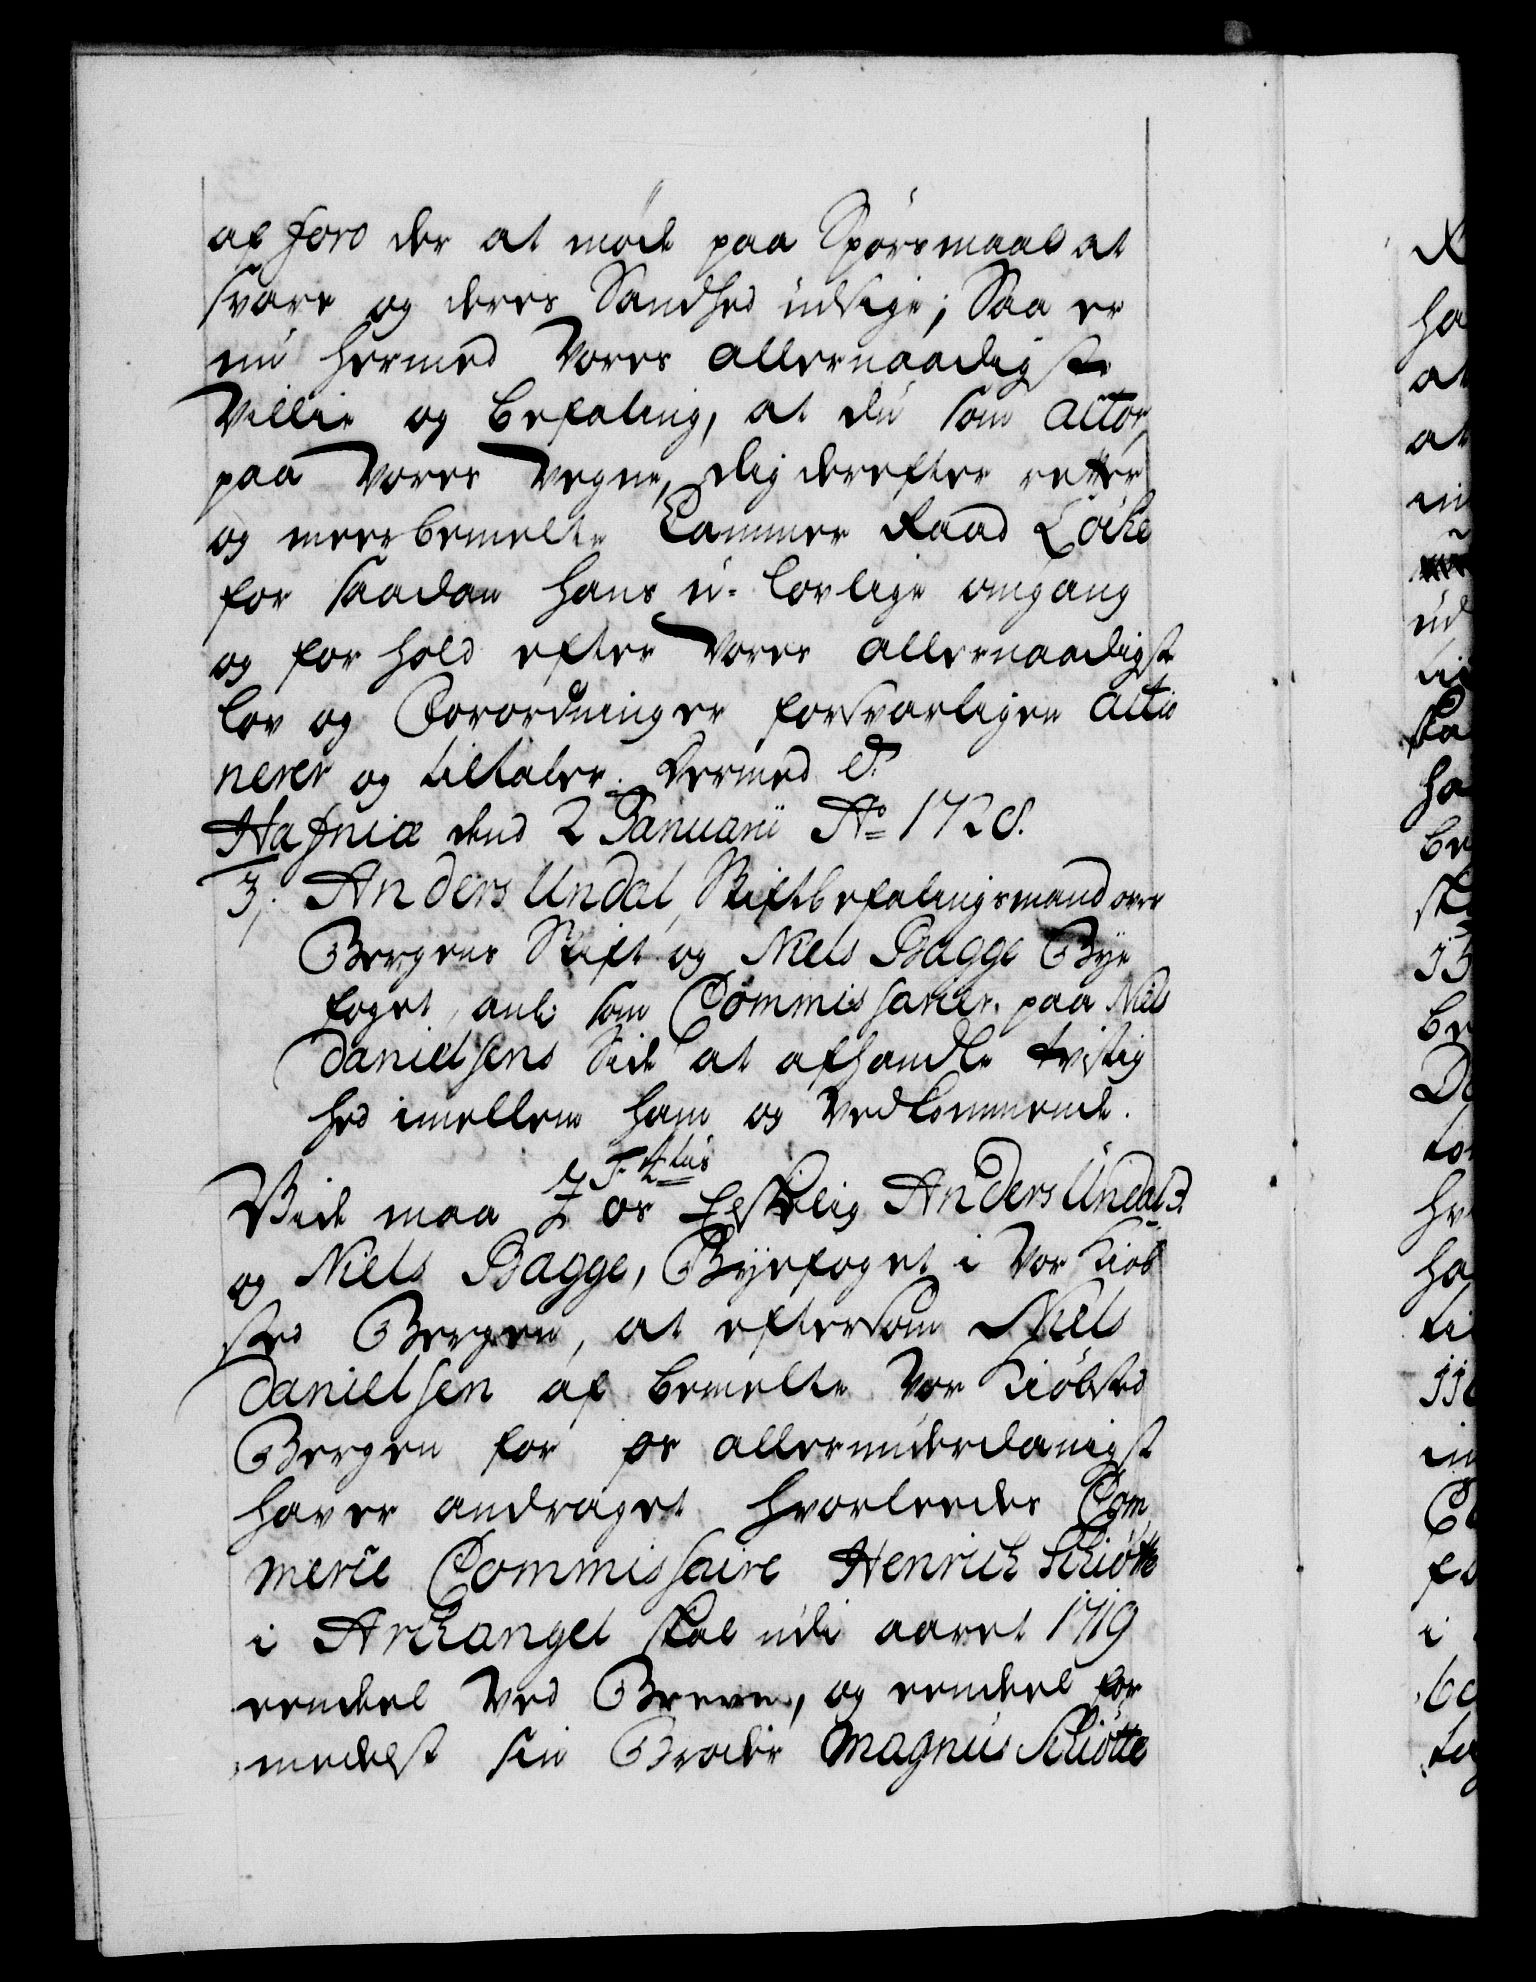 af Jord der at møde paa Spørsmaal at
svare og deres Sandhed udsige; Saa er
nu hermed Vores allernaadigste
Villie og befaling, at du som actor
paa Vores Vegne, dig derefter retter
og meerbemelte Cammer Raad Löcke
for saadan hans u-lovlige omgang
og forhold efter Vores allernaadigste
lov og Forordninger forsvarligen actio
nerer og tiltaler. Dermed &.
Hafniæ dend 2 Januarii Ao 1728.
3. Anders Undal, Stiftbefalingsmand over
Bergens Stift og Niels Bagge Bye
foget, anl: som Commissarier paa Niels
Danielsens Side at afhandle tvistig
hed imellem ham og Vedkommende.
F. 4tus
Vide maa os Elskelig Anders Undal
og Niels Bagge, Byefoget i Vor Kiøb
sted Bergen, at eftersom Niels
Danielsen af bemelte Vor Kiøbsted
Bergen for os allerunderdanigst
haver andraget hvorledes Com
merce Commissaire Henrich Schiøtte
i Archangel skal udi aaret 1719
eendeel ved Breve, og eendeel for
medelst sin Broder Magnus Schiøtte